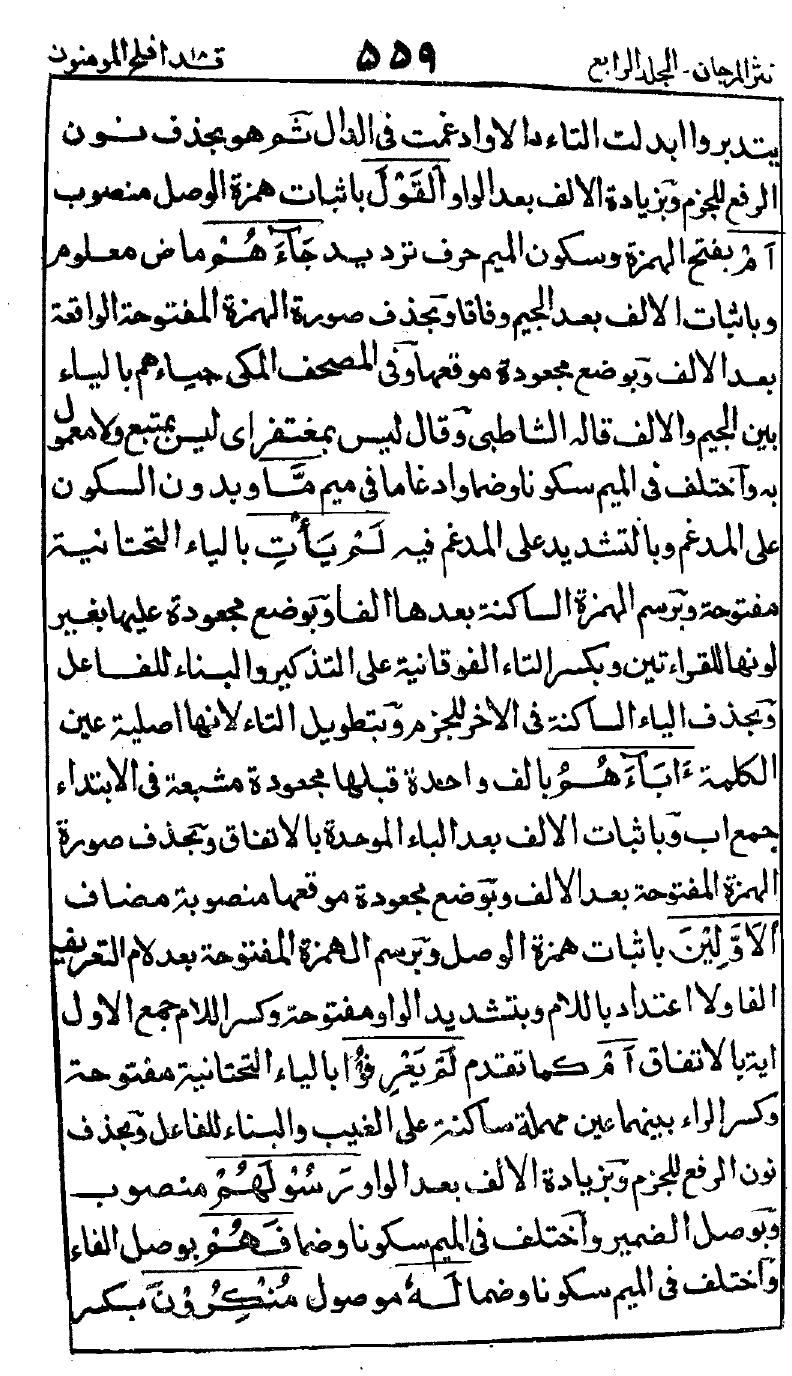 نثر المرجان - المجلد الرابع ٥٥٩ قد افلح المومنون ١٨
يتدبروا ابدلت التاء دالا وادغمت فى الدال ثم هو بحذف نون
الرفع للجزم وبزيادة الالف بعد الواو اَلْقَوْلَ باثبات همزة الوصل منصوب
اَمْ بفتح الهمزة وسكون الميم حرف ترديد جَآءَهُمْ ماض معلوم
وباثبات الالف بعد الجيم وفاقا وبحذف صورة الهمزة المفتوحة الواقعة
بعد الالف وبوضع مجعودة موقعها وفى المصحف المكى جياءهم بالياء
بين الجيم والالف قاله الشاطبى وقال ليس بمغتفر اى ليس بمتبع ولا معمول
به واختلف فى الميم سكونا وضما وادغاما فى ميم مَّا وبدون السكون
على المدغم وبالتشديد على المدغم فيه لَمْ يَأْتِ بالياء التحتانية
مفتوحة وبرسم الهمزة الساكنة بعدها الفا وبوضع مجعودة عليها بغير
لونها للقراءتين وبكسر التاء الفوقانية على التذكير والبناء للفاعل
وبحذف الياء الساكنة فى الاخر للجزم وبتطويل التاء لانها اصلية عين
الكلمة ءَابَآءَهُمُ بالف واحدة قبلها مجعودة مشبعة فى الابتداء
جمع اب وباثبات الالف بعد الباء الموحدة بالاتفاق وبحذف صورة
الهمزة المفتوحة بعد الالف وبوضع مجعودة موقعها منصوبة مضاف
اَلْاَوَّلِيْنَ باثبات همزة الوصل وبرسم الهمزة المفتوحة بعد لام التعريف
الفا ولا اعتداد باللام وبتشديد الواو مفتوحة وكسر اللام جمع الاول
اية بالاتفاق اَمْ كما تقدم لَمْ يَعْرِفُوْا بالياء التحتانية مفتوحة
وكسر الراء بينهما عين مهملة ساكنة على الغيب والبناء للفاعل وبحذف
نون الرفع للجزم وبزيادة الالف بعد الواو رَسُوْلَهُمْ منصوب
وبوصل الضمير واختلف فى الميم سكونا وضما فَهُمْ بوصل الفاء
واختلف فى الميم سكونا وضما لَهٗ موصول مُنْكِرُوْنَ بكسر